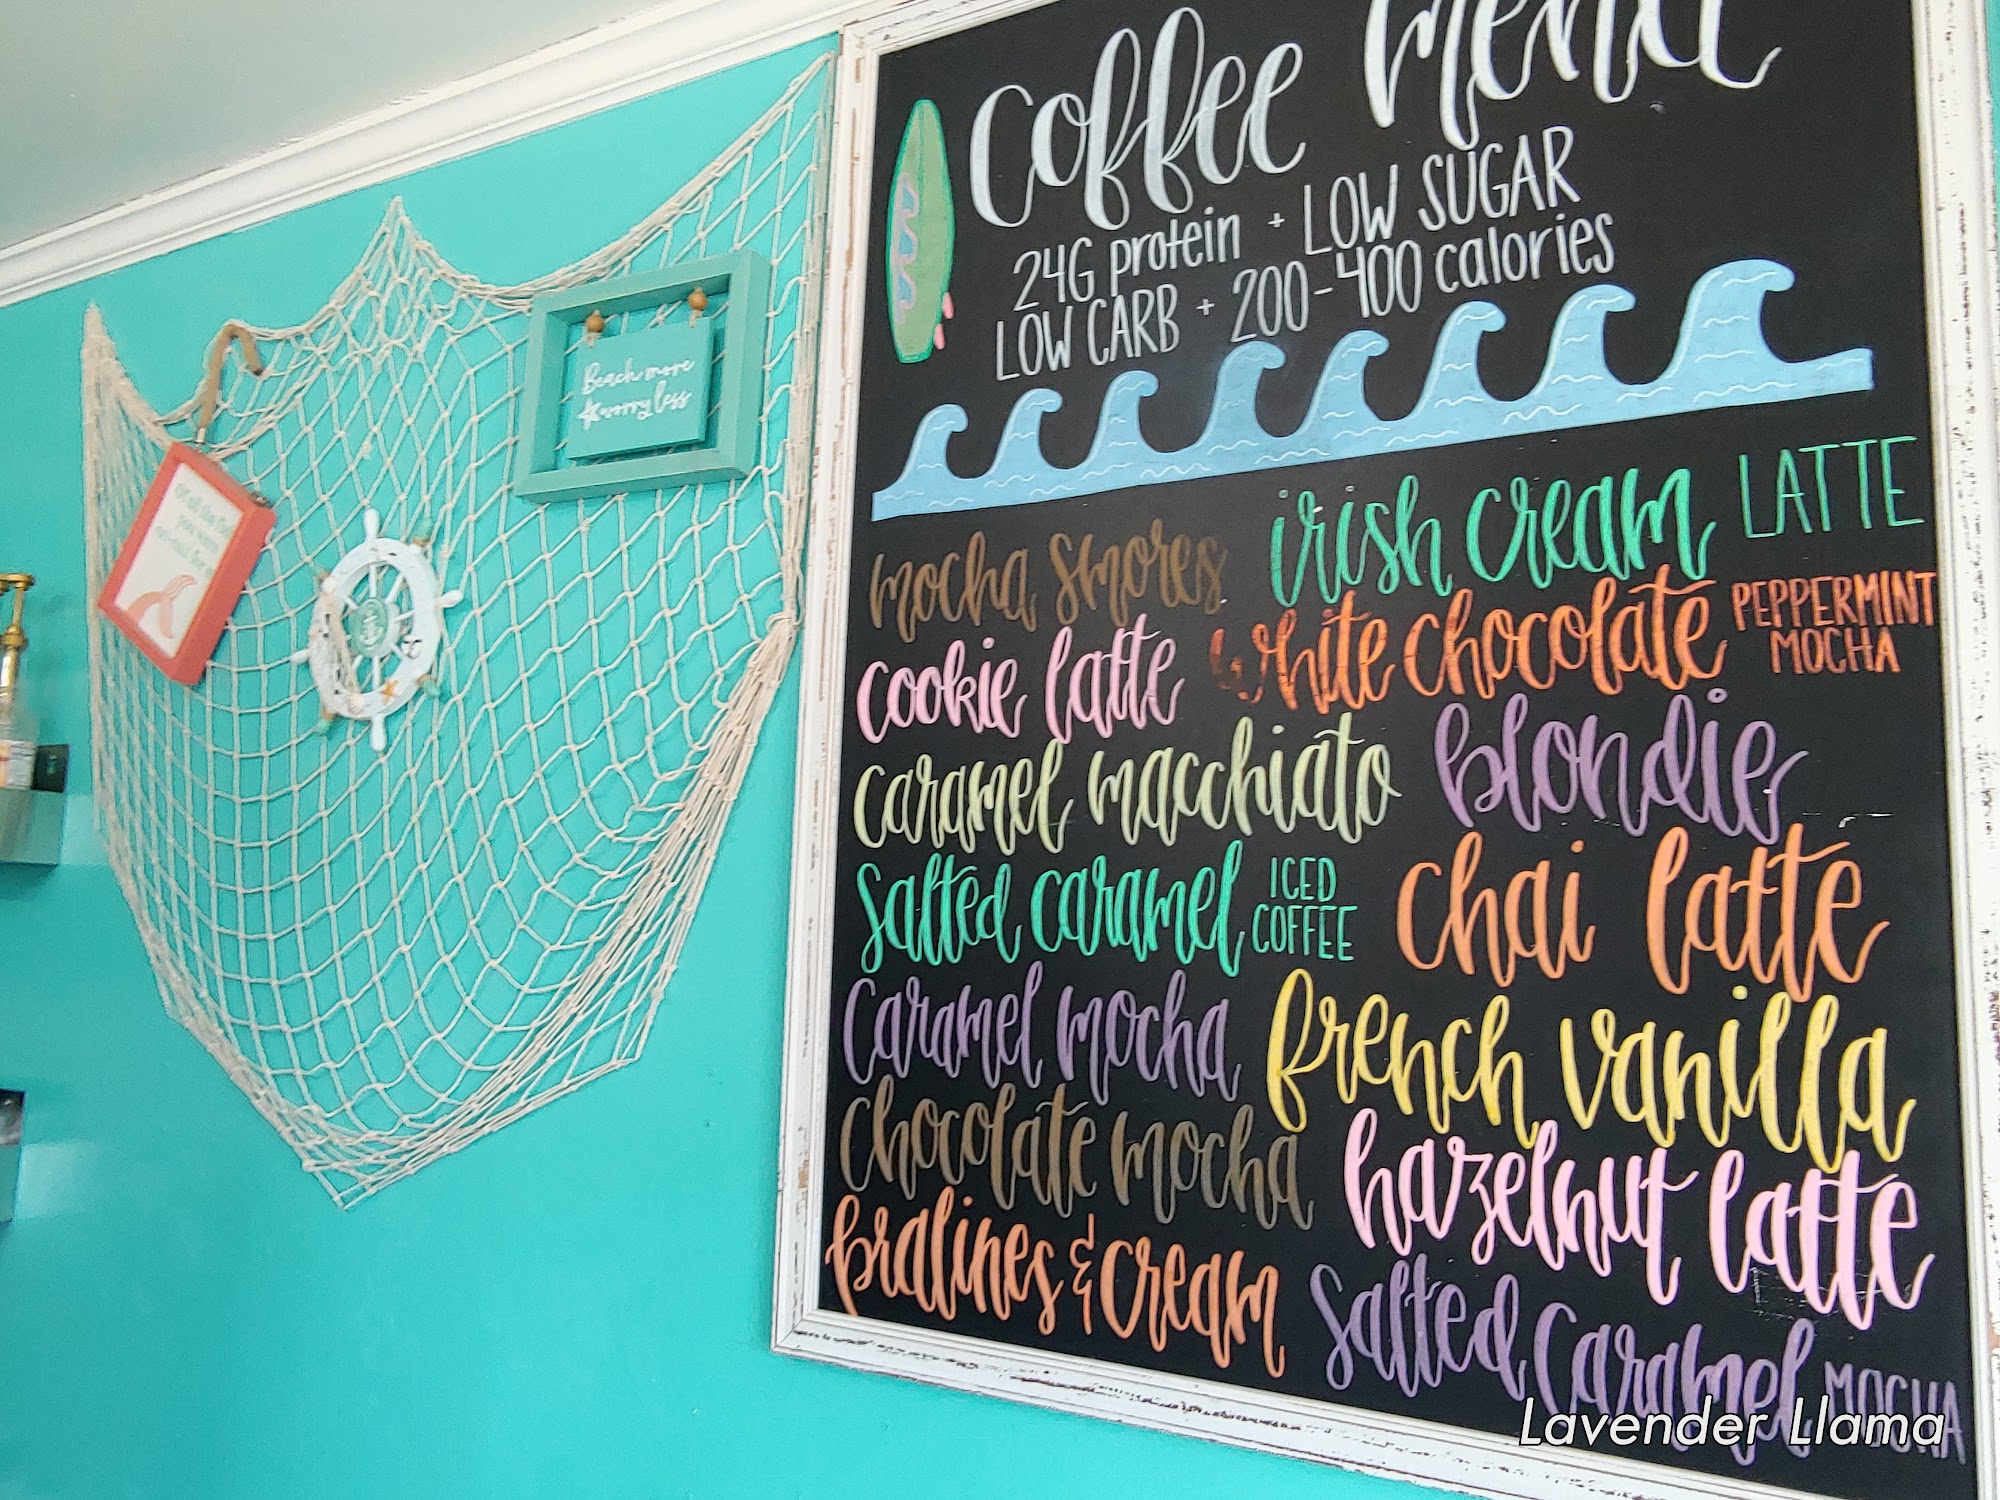 Coffee Menu
24G protein + LOW SUGAR
LOW CARB + 200-400 calories
Beach more
worry less
mocha smores
irish cream LATTE
cookie latte
white chocolate PEPPERMINT
MOCHA
caramel macchiato
blondie
salted caramel ICED
COFFEE
chai latte
caramel mocha
french vanilla
chocolate mocha
hazelnut latte
pralines & cream
salted caramel MOCHA
Lavender Llama